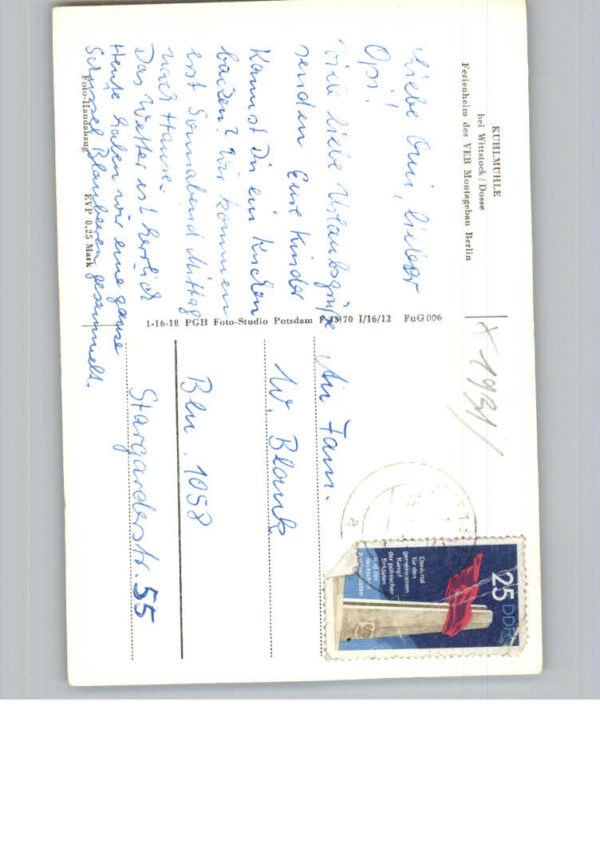 KUHLMÜHLE
bei Wittstock/Dosse
Ferienheim des VEB Montagebau Berlin
Liebe Omi, lieber
Opi!
Viele liebe Urlaubsgrüße
senden Eure Kinder
Kannst Du ein Kuchen
backen? Wir kommen
erst Sonnabend Mittag
nach Hause.
Das Wetter ist herrlich
Heute haben wir eine ganze
Schüssel Blaubeeren gesammelt.
Foto-Handabzug EVP 0.25 Mark
1-16-18 PGH Foto-Studio Potsdam 70 I/16/12 FuG 006
X 1931/
25 DDR
Denkmal
für den
gemeinsamen
Kampf
der polnischen
Soldaten
und der
deutschen
Antifaschisten
a
An Fam.
W. Blank
Bln. 1058
Stargarderstr. 55